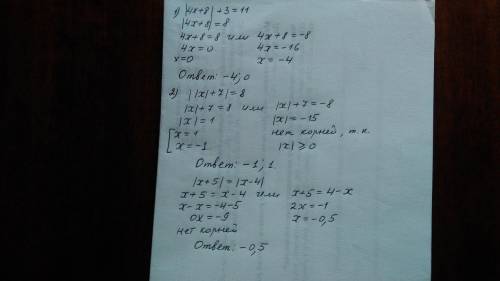 1) |4x+8| +3=11
|4x+8|=8
4x+8=8 или 4x+8=-8
4x=0 4x=-16
x=0 x=-4
Ответ: -4; 0
2) ||x|+7|=8
|x|+7=8 или |x|+7=-8
|x|=1 |x|=-15
[x=1 нет корней, т.к.
x=-1 |x|≥0
Ответ: -1; 1.
|x+5|=|x-4|
x+5=x-4 или x+5=4-x
x-x=-4-5 2x=-1
0x=-9 x=-0,5
нет корней
Ответ: -0,5